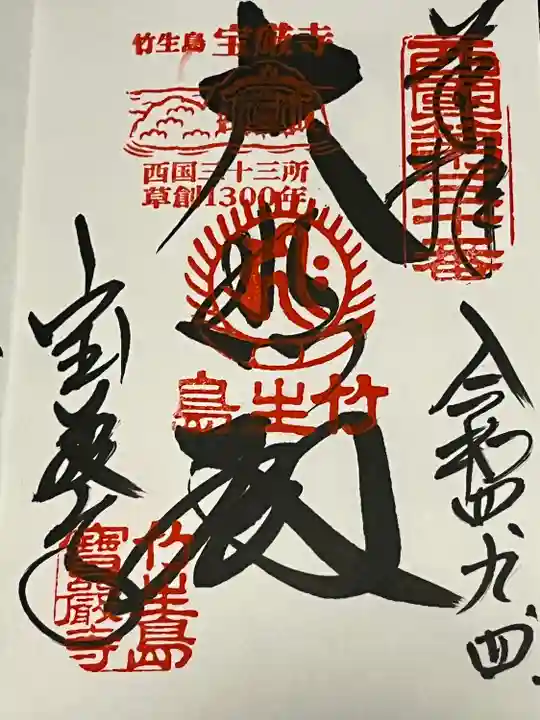 奉拝
西國第三十番
令和四、九、四
竹生島 宝厳寺
西国三十三所
草創1300年
大悲殿
竹生島
宝厳寺
竹生島
寶嚴寺